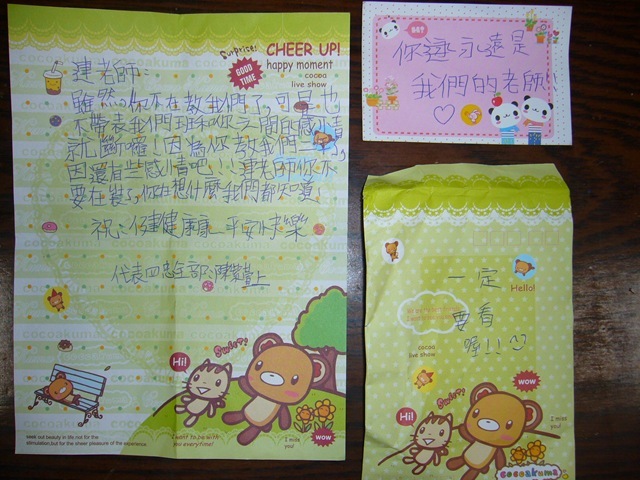 Surprise!
CHEER UP!
GOOD TIME
happy moment
cocoa
live show
連老師：
雖然你不在教我們了，可是也
不帶表我們班和你之間的感情
就斷囉！因為你教我們一年了，
因還有些感情吧！！連老師你不
要在裝了，你在想什麼我們都知道！
祝：健健康康、平安快樂
代表四忠全部：陳
上
cocoakuma
Sweet!
Hi!
I want to be with
you everytime!
I miss
you!
WOW
seek out beauty in life not for the
stimulation,but for the sheer pleasure of the experience.
你這永遠是
我們的老師!!
一定
要看
喔!!
Hello!
cocoa
live show
Sweet!
WOW
Hi!
I miss
you!
cocoakuma